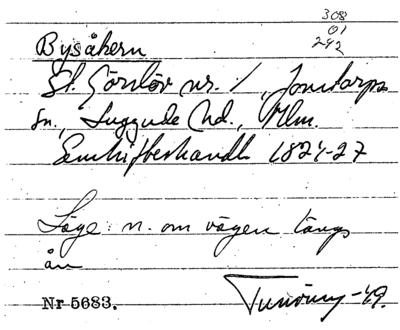 308
01
292
Bysåkern
St. Görslöv nr. 1, Jonstorps
sn., Luggude hd., Mlm.
Enskifteshandl. 1824-27
Läge: n. om vägen längs
ån
Nr 5683. -49.